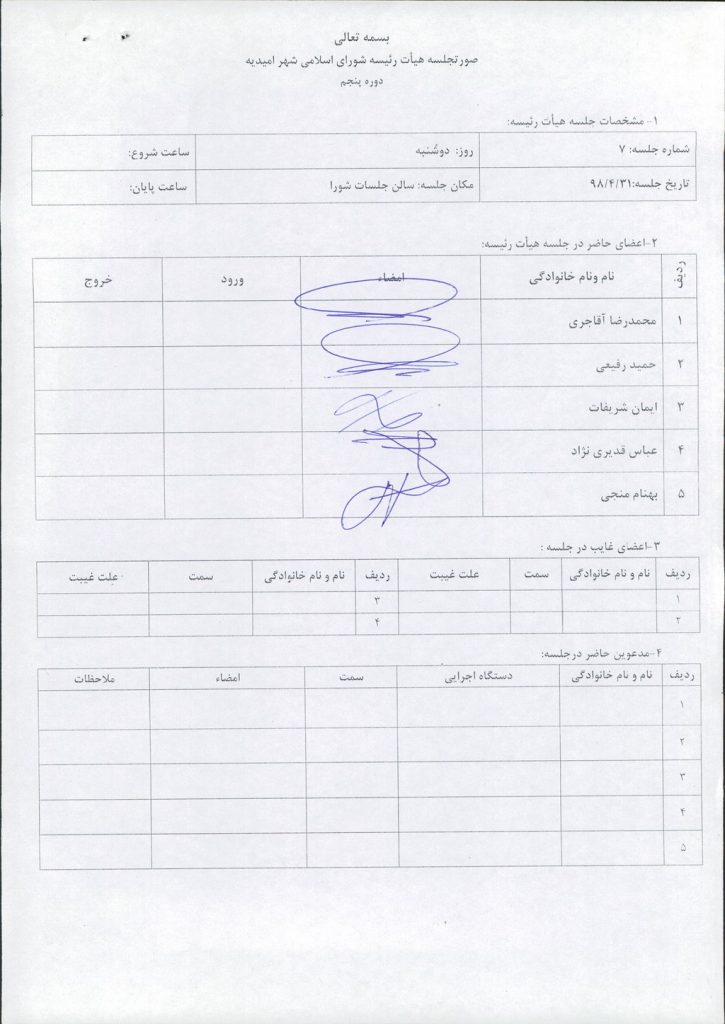 بسمه تعالی
صورتجلسه هیأت رئیسه شورای اسلامی شهر امیدیه
دوره پنجم
۱- مشخصات جلسه هیأت رئیسه:
شماره جلسه: ۷ روز: دوشنبه ساعت شروع:
تاریخ جلسه:۹۸/۴/۳۱ مکان جلسه: سالن جلسات شورا ساعت پایان:
۲-اعضای حاضر در جلسه هیأت رئیسه:
ردیف نام ونام خانوادگی امضاء ورود خروج
۱ محمدرضا آقاجری
۲ حمید رفیعی
۳ ایمان شریفات
۴ عباس قدیری نژاد
۵ بهنام منجی
۳-اعضای غایب در جلسه :
ردیف نام و نام خانوادگی سمت علت غیبت ردیف نام و نام خانوادگی سمت علت غیبت
۱ ۳
۲ ۴
۴-مدعوین حاضر درجلسه:
ردیف نام و نام خانوادگی دستگاه اجرایی سمت امضاء ملاحظات
۱
۲
۳
۴
۵